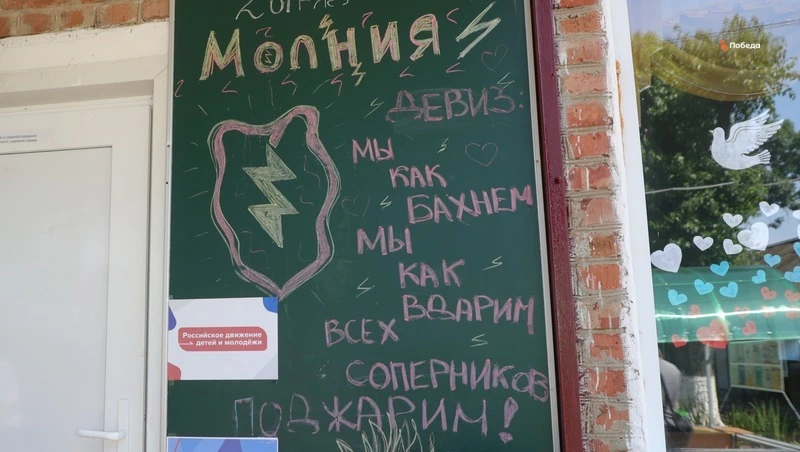 2 отряд
Молния
ДЕВИЗ:
МЫ
КАК
БАХНЕМ
МЫ
КАК
ВДАРИМ
ВСЕХ
СОПЕРНИКОВ
ПОДЖАРИМ!
Российское движение
детей и молодёжи
Победа